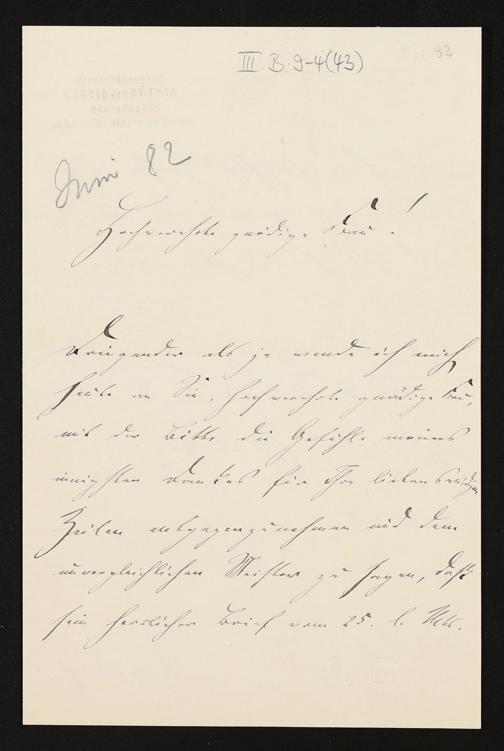 III. B. 9-4 (43)
82
Juni 82
Hochverehrte gnädige Frau!
Dringender als je wende ich mich
heute an Sie, hochverehrte gnädige Frau,
mit der Bitte die Gefühle meines
innigsten Dankes für Ihre liebenswürdigen
Zeilen entgegenzunehmen und dem
unvergleichlichen Meister zu sagen, daß
sein herrlicher Brief vom 25. l. Mts.